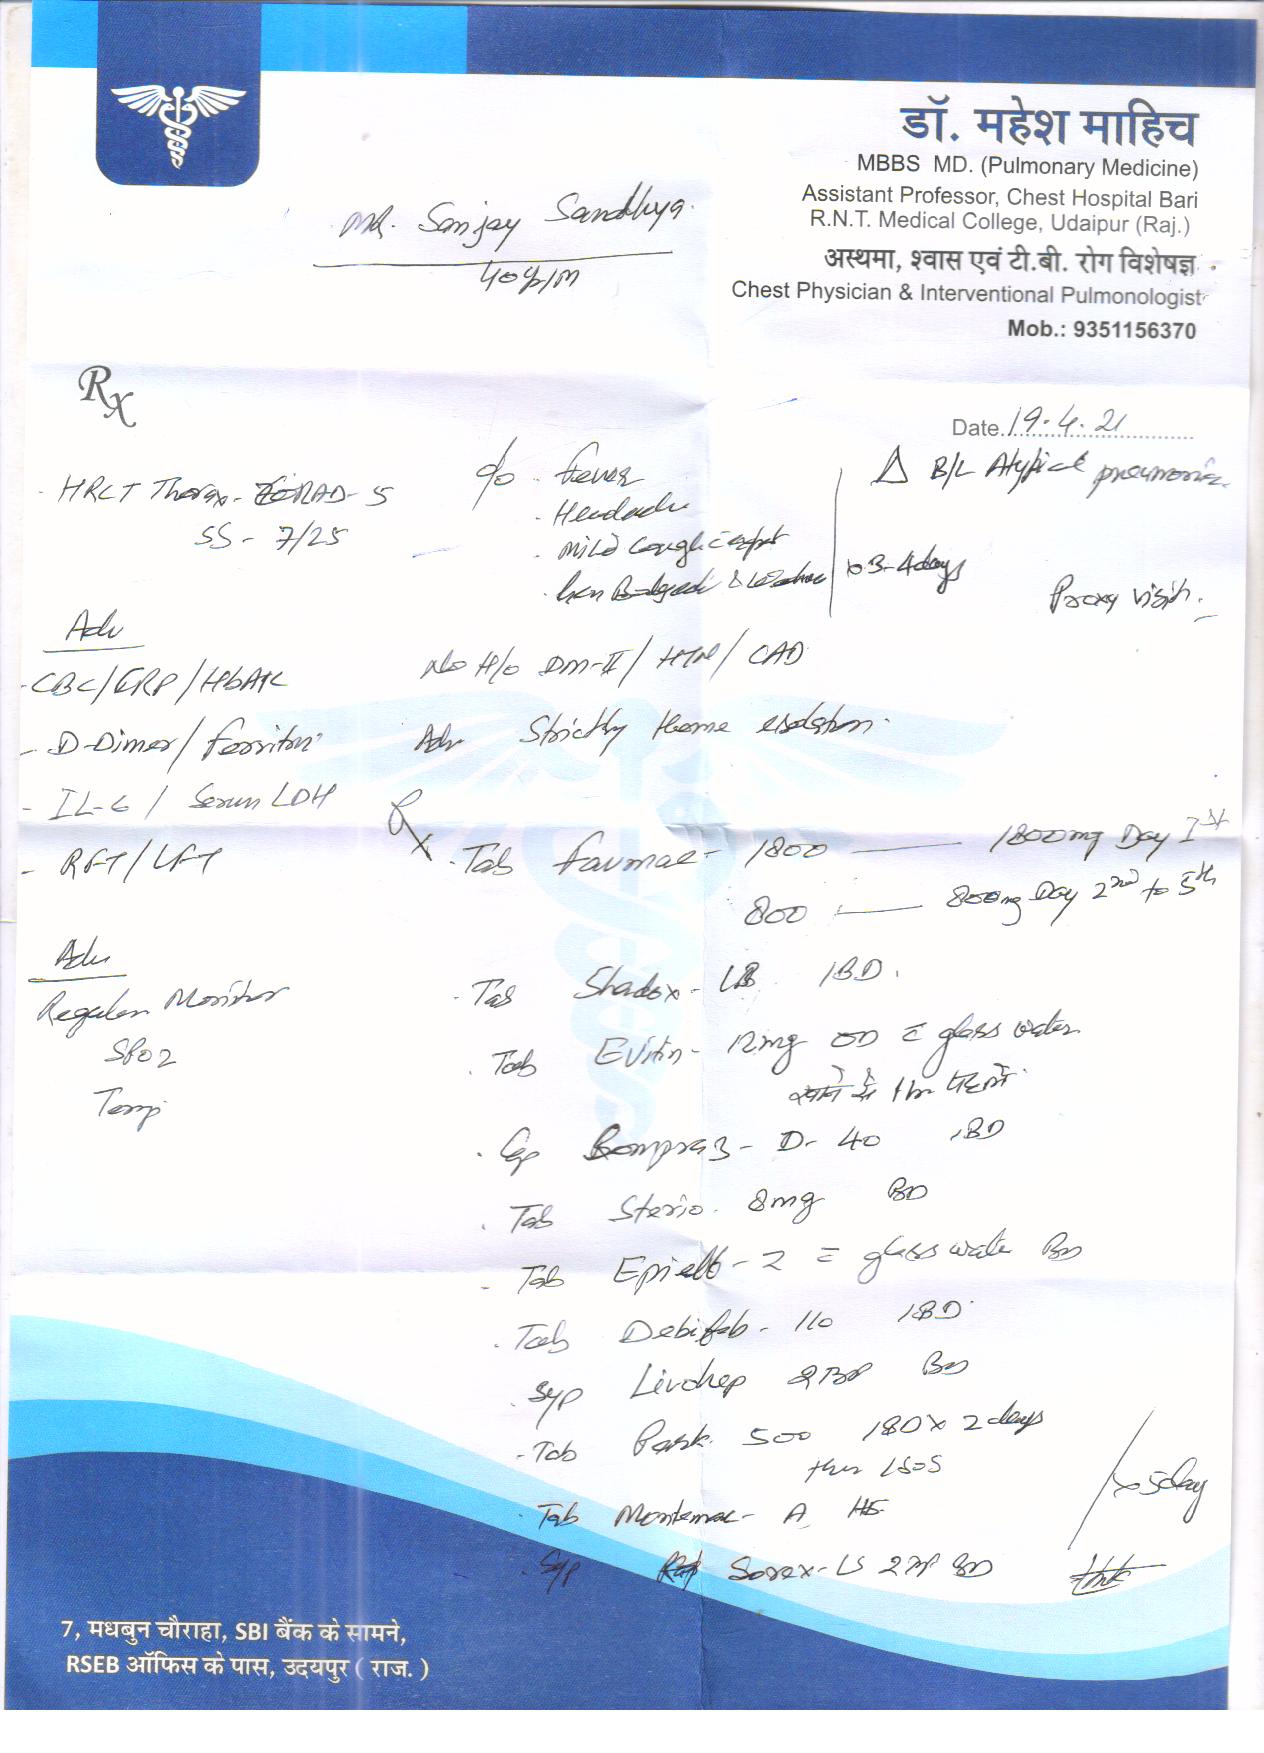 डॉ. महेश माहिच
MBBS MD. (Pulmonary Medicine)
Assistant Professor, Chest Hospital Bari
R.N.T. Medical College, Udaipur (Raj.)
अस्थमा, श्वास एवं टी.बी. रोग विशेषज्ञ
Chest Physician & Interventional Pulmonologist
Mob.: 9351156370
Mr. Sanjay Sandhya
40y/m
Rx
Date. 19.4.21
Δ B/L Atypical pneumonia
HRCT Thorax - CORAD - 5
SS - 7/25
c/o . Fever
. Headache
. Mild Cough c
x 3-4 days
Proxy visit.
Adv
- CBC/CRP/HbA1C
- D-Dimer/ferritin
- IL-6 / Serum LDH
- RFT/LFT
No H/o DM-II/ HTN/ CAD
Adv Strictly Home isolation.
Rx
. Tab Favmac - 1800 — 1800mg Day 1st
800 — 800mg Day 2nd to 5th
Adv
Regular Monitor
SPO2
Temp
. Tab Shadox - LB 1BD.
. Tab Evitin - 12mg OD c glass water
खाने से 1hr पहले
. Cap Bompraz - D - 40 1BD
. Tab Sterio. 8mg BD
. Tab - 2 c glass water BD
. Tab - 110 1BD
. Syp BD
. Tab 500 1BD x 2 days
then 1SOS
. Tab Montemac - A HS
. Syp Sorex - LS 2 BD
x 5day
7, मधबुन चौराहा, SBI बैंक के सामने,
RSEB ऑफिस के पास, उदयपुर ( राज. )